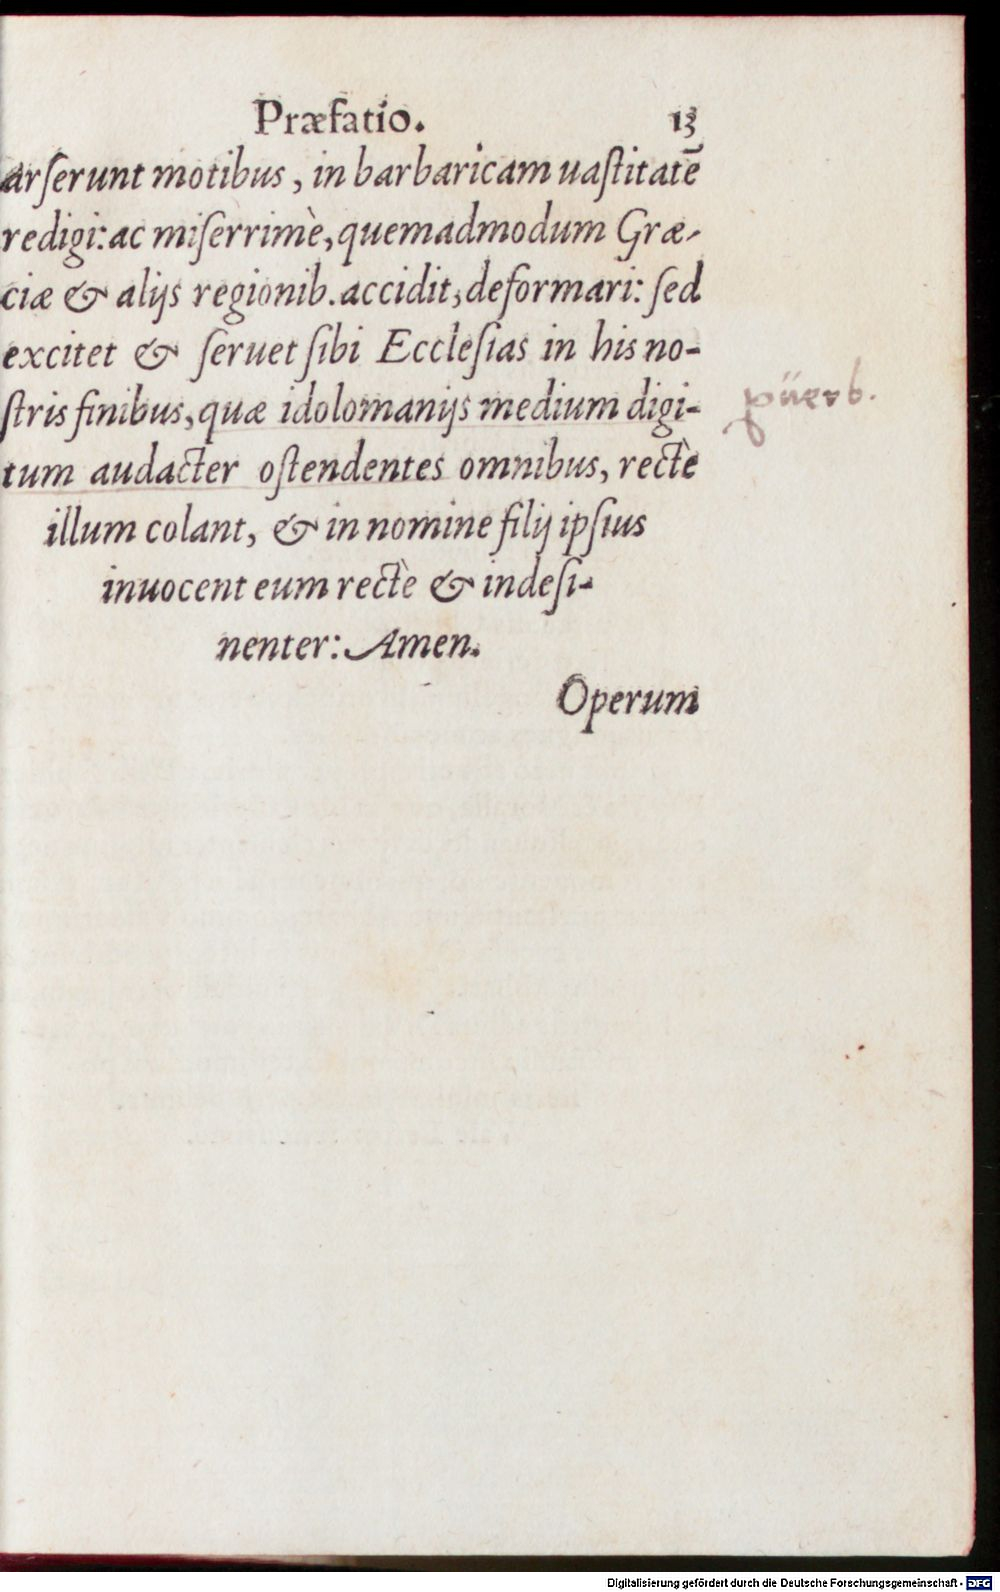 Præfatio. 13
arſerunt motibus, in barbaricam uaſtitatē
redigi: ac miſerrimè, quemadmodum Græ-
ciæ & alijs regionib. accidit, deformari: ſed
excitet & ſeruet ſibi Eccleſias in his no-
ſtris finibus, quæ idolomanijs medium digi-
tum audacter oſtendentes omnibus, rectè
illum colant, & in nomine filij ipſius
inuocent eum rectè & indeſi-
nenter: Amen.
Operum
Digitalisierung gefördert durch die Deutsche Forschungsgemeinschaft - DFG